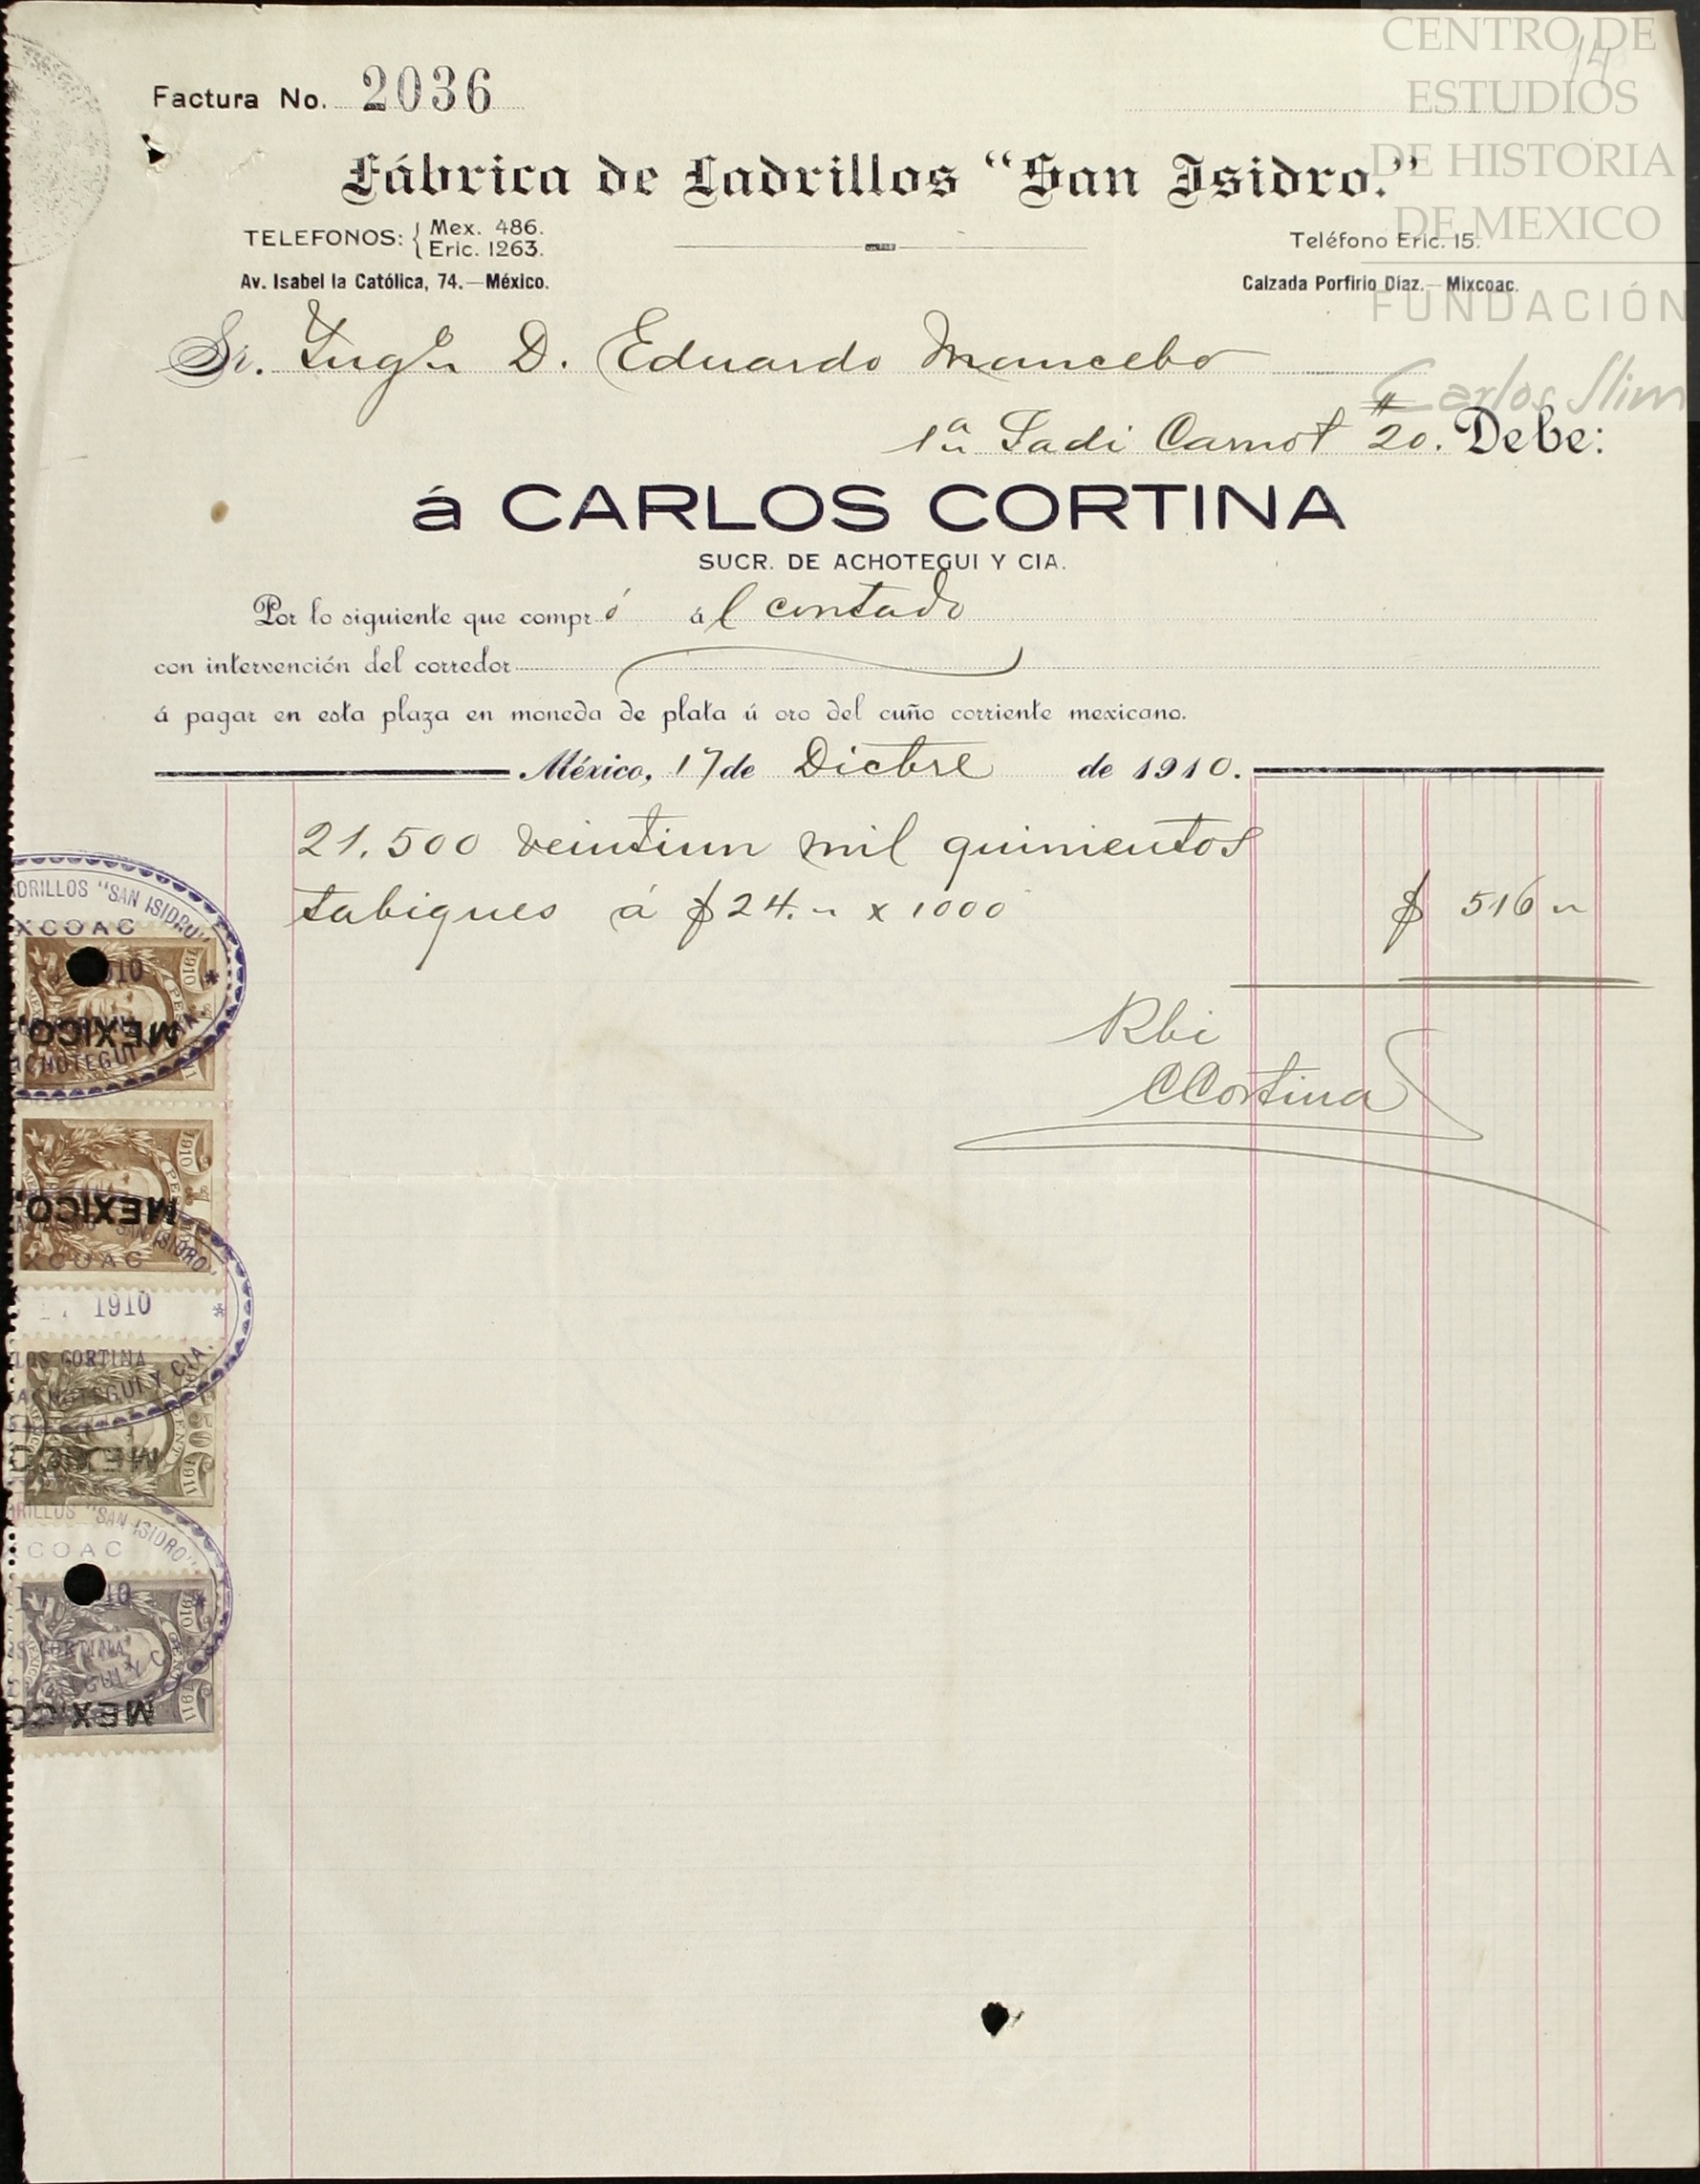 CENTRO DE
ESTUDIOS
DE HISTORIA
DE MEXICO
FUNDACIÓN
Carlos Slim
14
Factura No. 2036
Fábrica de Ladrillos "San Isidro."
TELEFONOS: { Mex. 486.
Eric. 1263.
Teléfono Eric. 15.
Av. Isabel la Católica, 74.—México.
Calzada Porfirio Díaz.—Mixcoac.
Sr. D. Eduardo Mancebo
1a Sadi Carnot # 20. Debe:
á CARLOS CORTINA
SUCR. DE ACHOTEGUI Y CIA.
Por lo siguiente que compró ál contado
con intervención del corredor
á pagar en esta plaza en moneda de plata ú oro del cuño corriente mexicano.
México, 17 de Dicbre de 1910.
21.500 veintiun mil quinientos
tabiques á $ 24. x 1000 $ 516
Rbi
CCortina
DRILLOS "SAN ISIDRO"
XCOAC
1910
MEXICO,
ACHOTEGUI
1910
MEXICO,
"SAN ISIDRO"
XCOAC
1910
LOS CORTINA
ACHOTEGUI Y CIA.
50
CENT
1911
MEXICO
RILLOS "SAN ISIDRO"
COAC
10
1910
CORTINA
CENT
1911
MEXICO